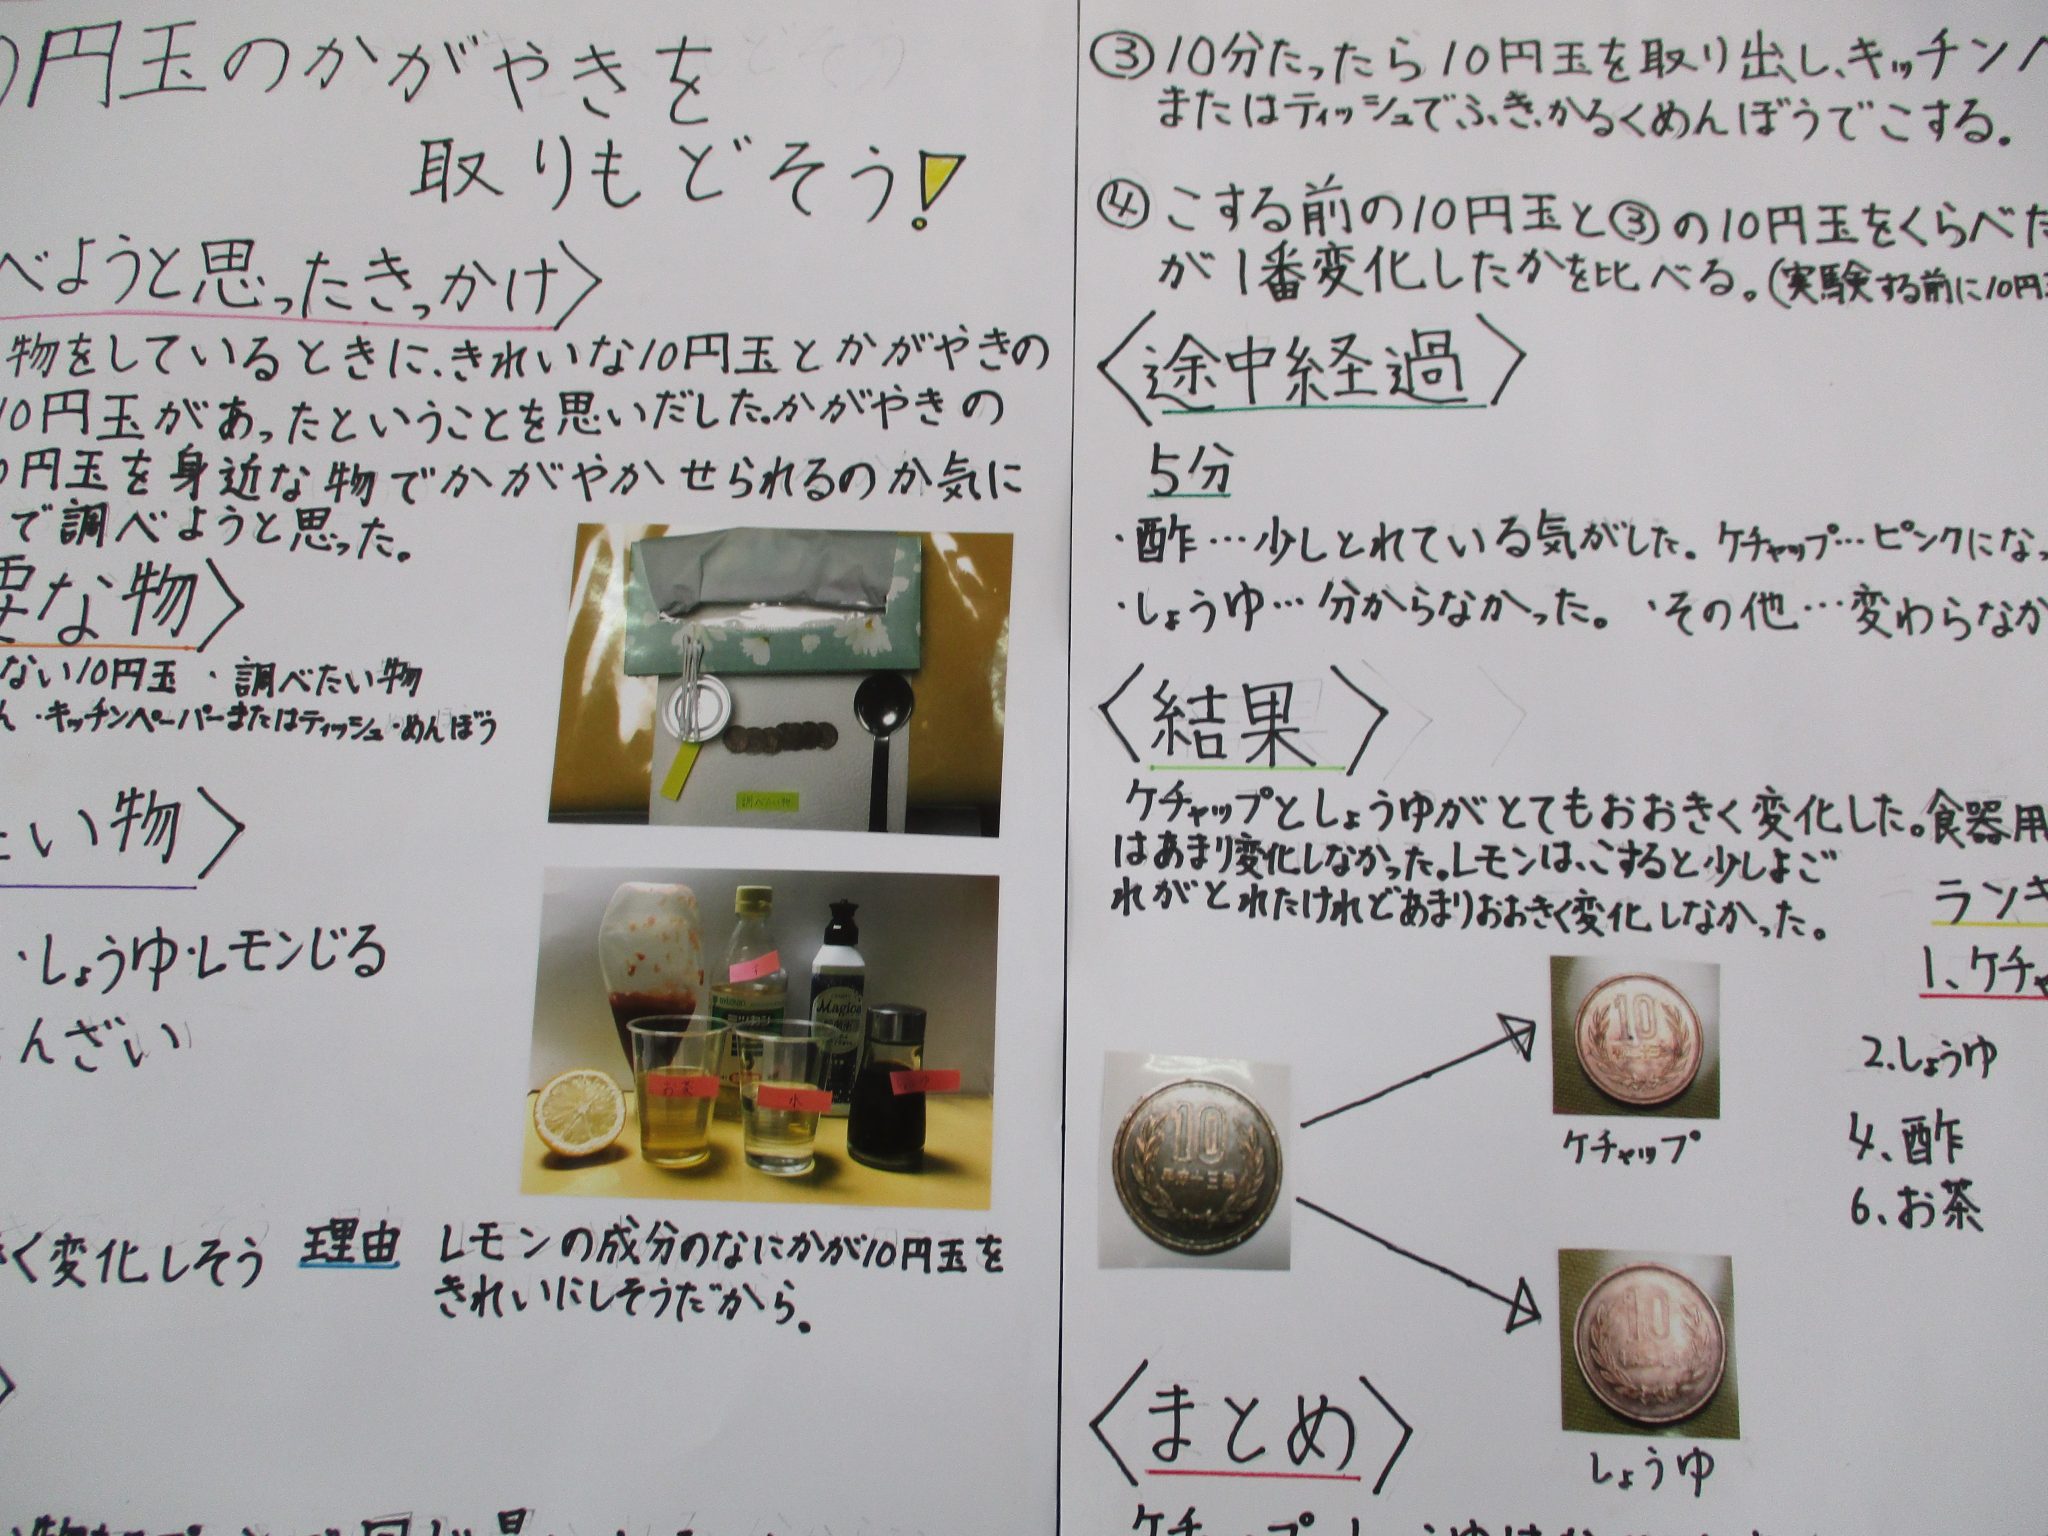 0円玉のかがやきを
取りもどそう!
べようと思ったきっかけ〉
物をしているときに、きれいな10円玉とかがやきの
10円玉があったということを思いだした。かがやきの
0円玉を身近な物でかがやかせられるのか気に
で調べようと思った。
要な物〉
ない10円玉 ・調べたい物
ん ・キッチンペーパーまたはティッシュ・めんぼう
調べたい物
たい物〉
・しょうゆ・レモンじる
んざい
Magica
お茶
水
く変化しそう 理由 レモンの成分のなにかが10円玉を
きれいにしそうだから。
③10分たったら10円玉を取り出し、キッチンペ
またはティッシュでふき、かるくめんぼうでこする。
④こする前の10円玉と③の10円玉をくらべた
が1番変化したかを比べる。(実験する前に10円玉
〈途中経過〉
5分
・酢…少しとれている気がした。ケチャップ…ピンクになっ
・しょうゆ…分からなかった。 ・その他…変わらなか
〈結果〉
ケチャップとしょうゆがとてもおおきく変化した。食器用
はあまり変化しなかった。レモンは、こすると少しよご
れがとれたけれどあまりおおきく変化しなかった。
ランキ
1、ケチャ
2.しょうゆ
4、酢
6、お茶
10
10
ケチャップ
10
しょうゆ
〈まとめ〉